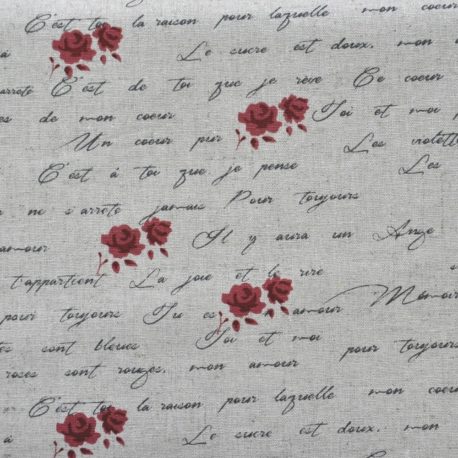 C'est toi la raison pour laquelle mon coeur
à Le sucre est doux, mon
arrête C'est de toi que je rêve Ce coeur
es de mon coeur Toi et moi p
Un coeur pur Les violette
C'est à toi que je pense Les
ne s'arrête jamais Pour toujours
amour Il y aura un Ange
t'appartient La joie et le rire
pour toujours Tu es amour Mémoire
tes sont bleues Toi et moi pour toujours
roses sont rouges, mon amour mon
C'est toi la raison pour laquelle mon coeur
à Le sucre est doux, mon